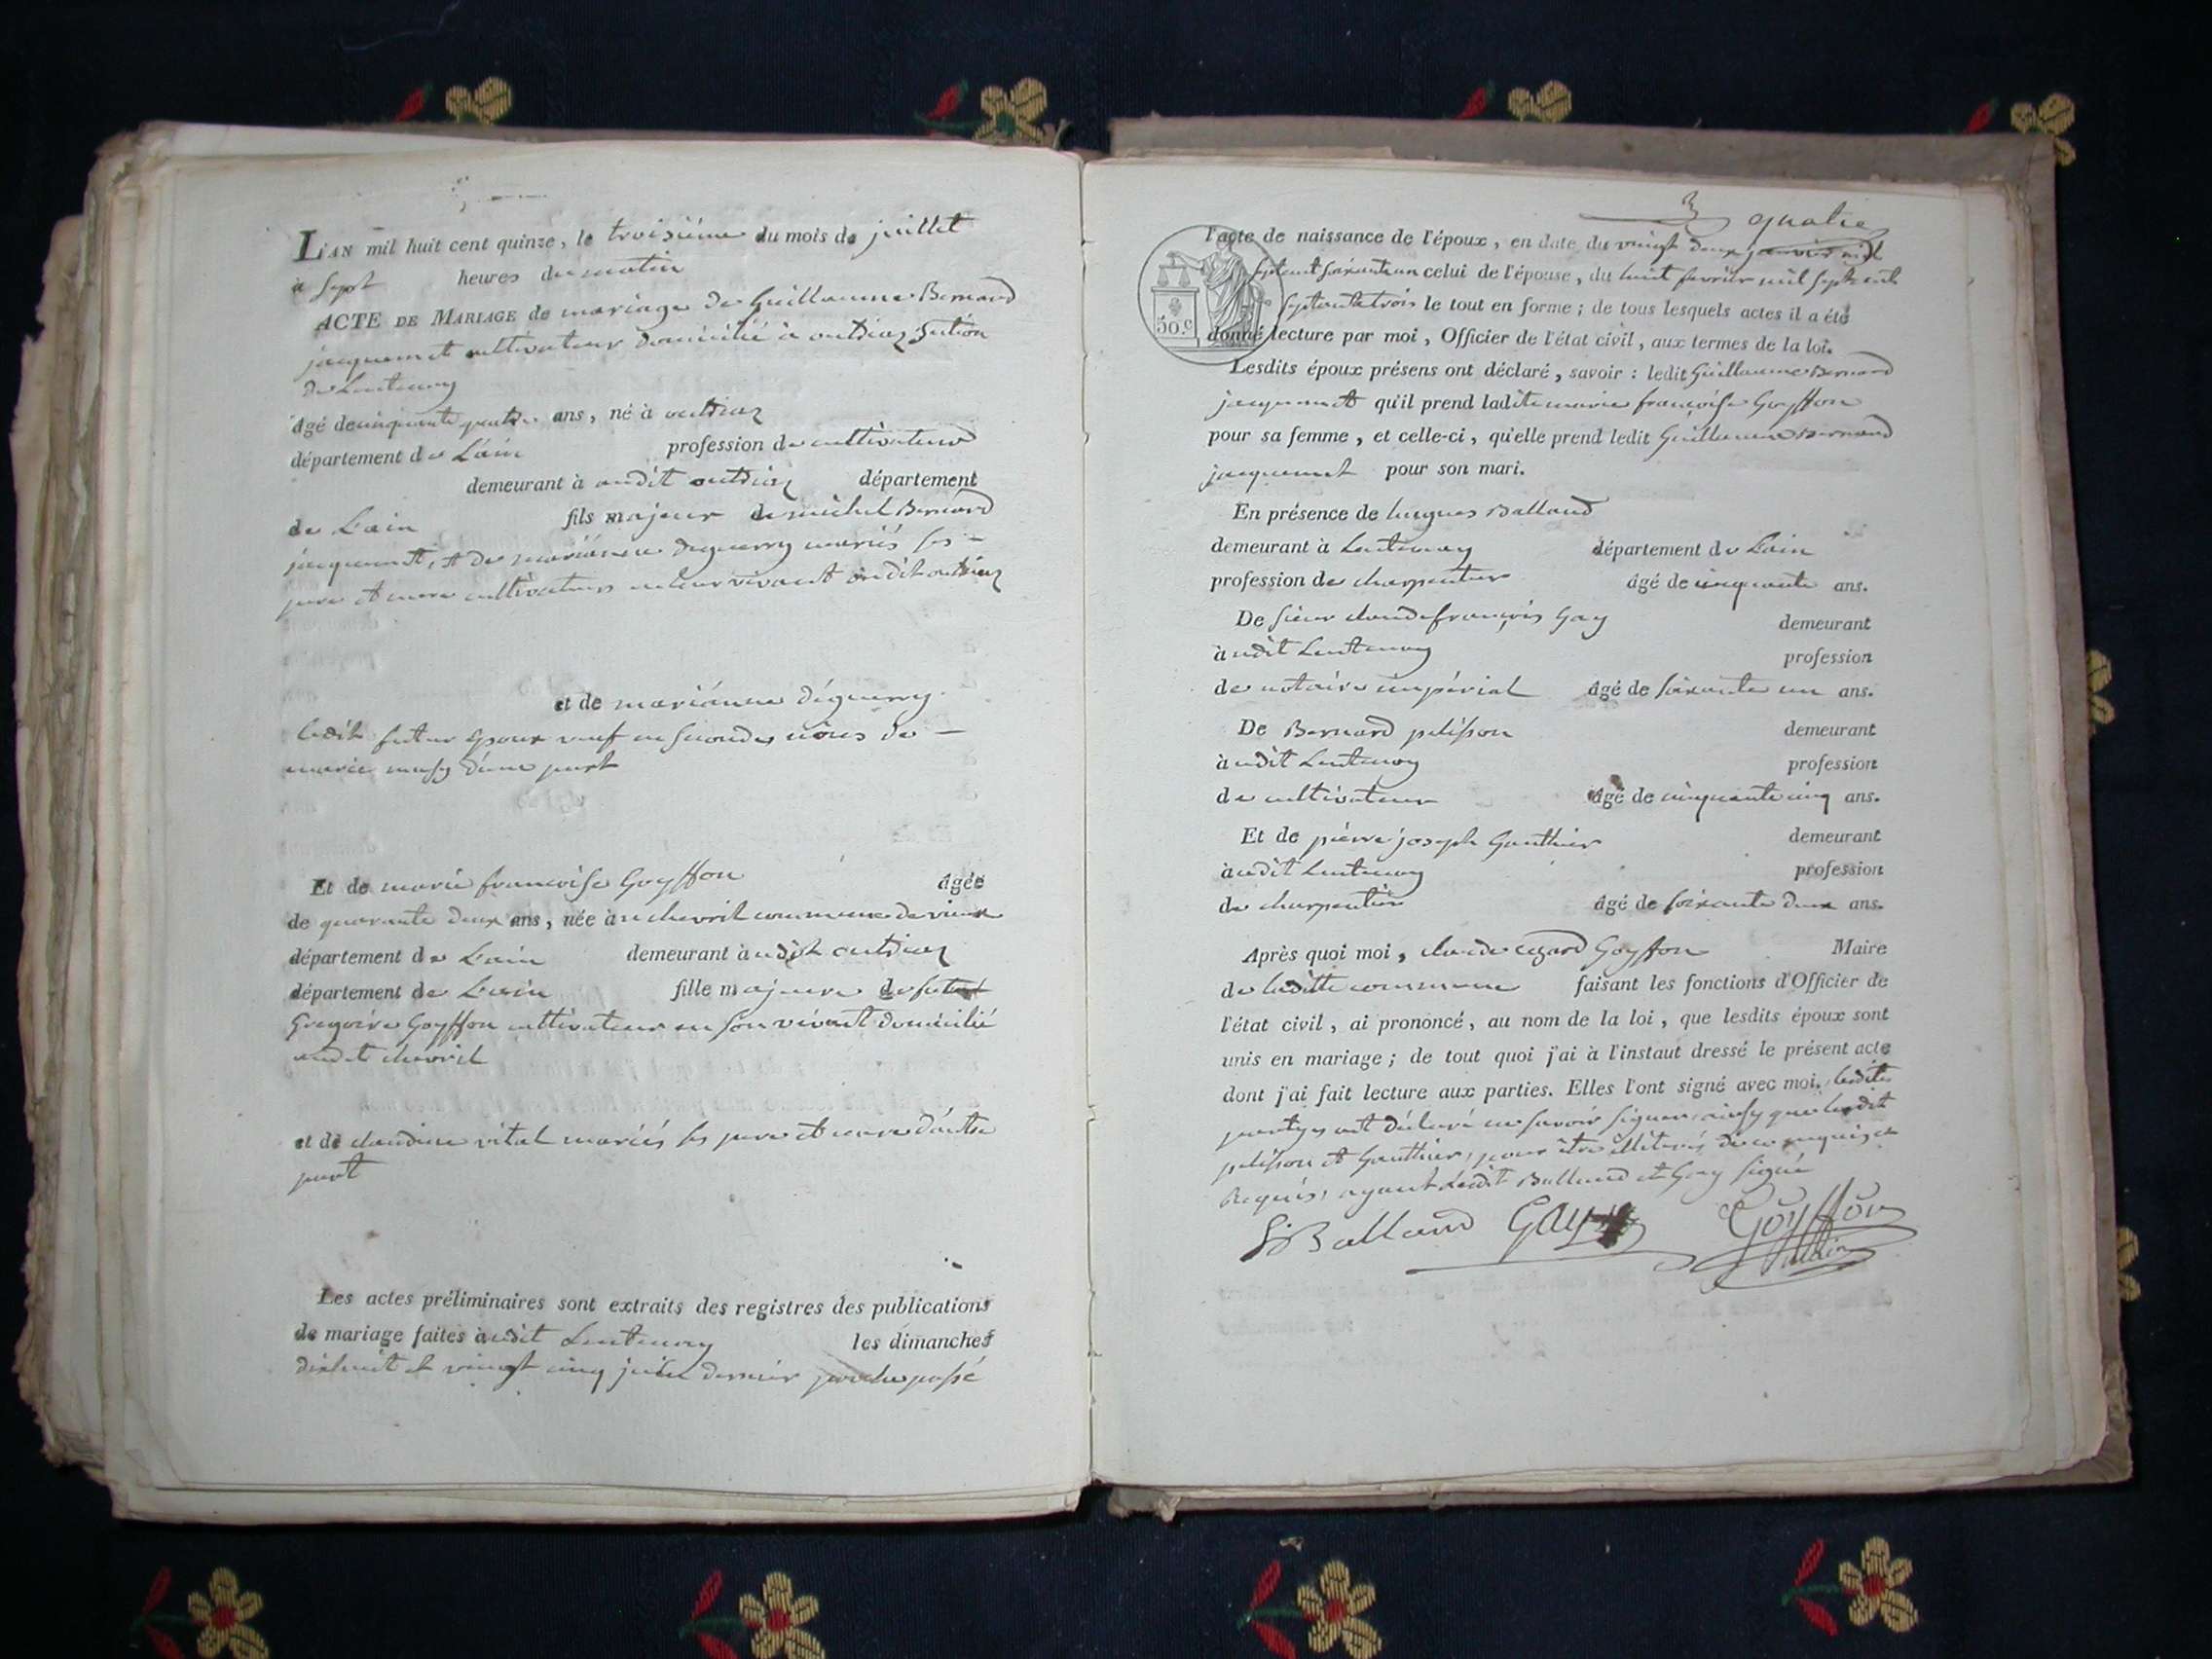 L'AN mil huit cent quinze, le troisième du mois de juillet
à sept heures du matin
ACTE DE MARIAGE de mariage de Guillaume Bernard
jacquemet cultivateur domicilié à outriaz section
de Lentenay
âgé de cinquante quatre ans, né à outriaz
département de L'ain profession de cultivateur
demeurant à audit outriaz département
de L'ain fils majeur de michel Bernard
jacquemet, et de marianne deguerry mariés ses
pere et mere cultivateurs en leur vivant audit outriaz
et de marianne déguerry
ledit futur Epoux veuf en secondes nôces de
marie d'une part
Et de marie francoise Goyffon âgée
de quarante deux ans, née à chevril commune de vieux
département de L'ain demeurant à udit outriaz
département de L'ain fille majeure de
Gregoire Goyffon cultivateur en son vivant domicilié
audit chevril
et de claudine vital mariés ses pere et mere d'autre
part
Les actes préliminaires sont extraits des registres des publications
de mariage faites à udit Lentenay les dimanches
dixhuit et vingt cinq juin dernier proche passé
3 quatre
l'acte de naissance de l'époux, en date du vingt deux janvier mil
septcent soixante un celui de l'épouse, du huit fevrier mil sept cent
septante trois le tout en forme; de tous lesquels actes il a été
50.c
donné lecture par moi, Officier de l'état civil, aux termes de la loi.
Lesdits époux présens ont déclaré, savoir: ledit Guillaume Bernard
jacquemet qu'il prend ladite marie françoise Goyffon
pour sa femme, et celle-ci, qu'elle prend ledit Guillaume Bernard
jacquemet pour son mari.
En présence de hugues Balland
demeurant à Lentenay département de L'ain
profession de charpentier âgé de cinquante ans.
De sieur claude françois Gay demeurant
à udit Lentenay profession
de notaire impérial âgé de soixante un ans.
De Bernard pelisson demeurant
à udit Lentenay profession
de cultivateur âgé de cinquante cinq ans.
Et de pierre joseph Gauthier demeurant
à udit Lentenay profession
de charpentier âgé de soixante deux ans.
Après quoi moi, claude cezard Goyffon Maire
de laditte commune faisant les fonctions d'Officier de
l'état civil, ai prononcé, au nom de la loi, que lesdits époux sont
unis en mariage; de tout quoi j'ai à l'instaut dressé le présent acte
dont j'ai fait lecture aux parties. Elles l'ont signé avec moi. lesdites
partyes ont déclaré ne savoir signer, ainsy que lesdit
pelisson et Gauthier, pour être illiterés, de ce enquis et
Requis, ayant lesdit Balland et Gay signé
Balland GAY Goyffon